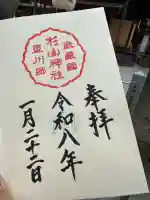 奉拝
武蔵國
杉山神社
星川郷
令和八年
一月二十二日